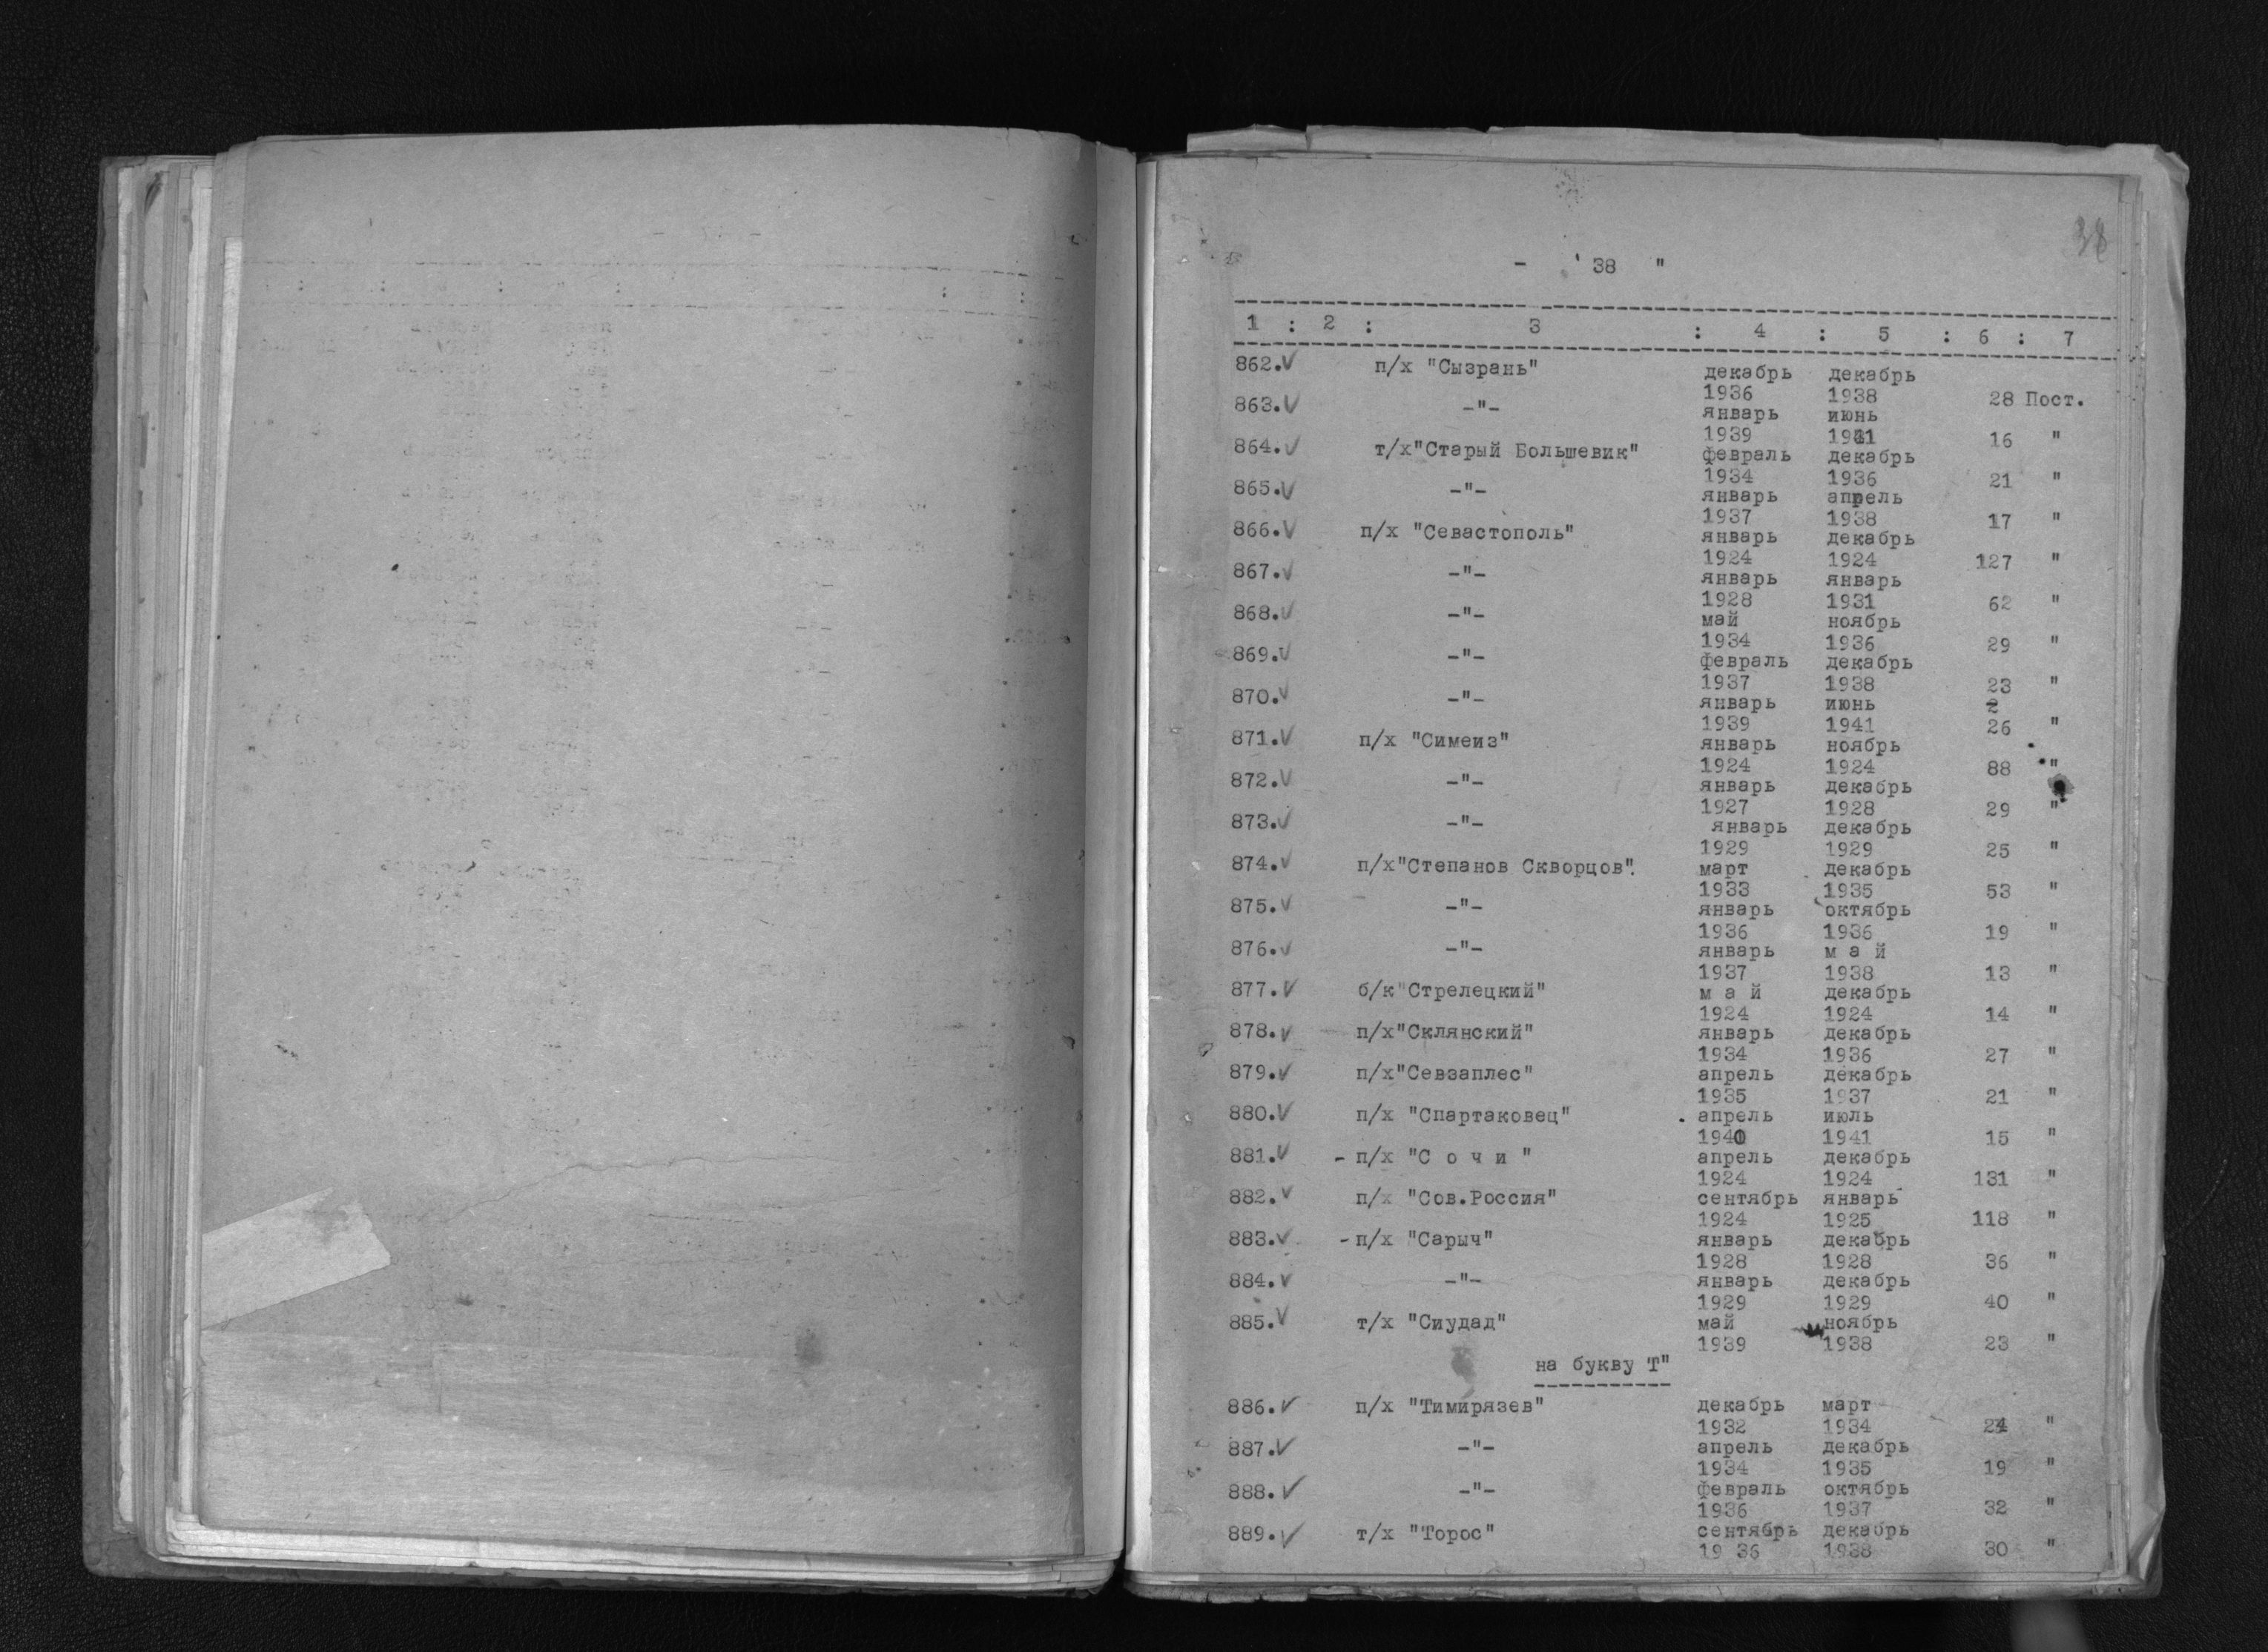 38
- ' 38 "
1 : 2 : 3 : 4 : 5 : 6 : 7
862.✓ п/х "Сызрань" декабрь декабрь
1936 1938 28 Пост.
863.✓ -"- январь июнь
1939 1941 16 "
864.✓ т/х"Старый Большевик" февраль декабрь
1934 1936 21 "
865.✓ -"- январь апрель
1937 1938 17 "
866.✓ п/х "Севастополь" январь декабрь
1924 1924 127 "
867.✓ -"- январь январь
1928 1931 62 "
868.✓ -"- май ноябрь
1934 1936 29 "
869.✓ -"- февраль декабрь
1937 1938 23 "
870.✓ -"- январь июнь 2
1939 1941 26 "
871.✓ п/х "Симеиз" январь ноябрь
1924 1924 88 "
872.✓ -"- январь декабрь
1927 1928 29 "
873.✓ -"- январь декабрь
1929 1929 25 "
874.✓ п/х"Степанов Скворцов". март декабрь
1933 1935 53 "
875.✓ -"- январь октябрь
1936 1936 19 "
876.✓ -"- январь м а й
1937 1938 13 "
877.✓ б/к"Стрелецкий" м а й декабрь
1924 1924 14 "
878.✓ п/х"Склянский" январь декабрь
1934 1936 27 "
879.✓ п/х"Севзаплес" апрель декабрь
1935 1937 21 "
880.✓ п/х "Спартаковец" апрель июль
1940 1941 15 "
881.✓ - п/х "С о ч и " апрель декабрь
1924 1924 131 "
882.✓ п/х "Сов.Россия" сентябрь январь
1924 1925 118 "
883.✓ - п/х "Сарыч" январь декабрь
1928 1928 36 "
884.✓ -"- январь декабрь
1929 1929 40 "
885.✓ т/х "Сиудад" май ноябрь
1939 1938 23 "
на букву Т"
886.✓ п/х "Тимирязев" декабрь март
1932 1934 24 "
887.✓ -"- апрель декабрь
1934 1935 19 "
888.✓ -"- февраль октябрь
1936 1937 32 "
889.✓ т/х "Торос" сентябрь декабрь
19 36 1938 30 "